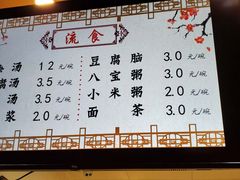 流食
汤 12元/碗 豆腐脑 3.0元/碗
腐汤 3.5元/碗 八宝粥 3.0元/碗
汤 3.5元/碗 小米粥 2.0元/碗
浆 2.0元/碗 面茶 3.0元/碗